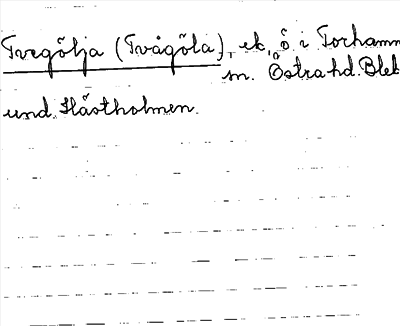 Tvegölja (Tvågöla), ek, ö i Torhamn
m. Östra hd. Blek
und. Hästholmen.